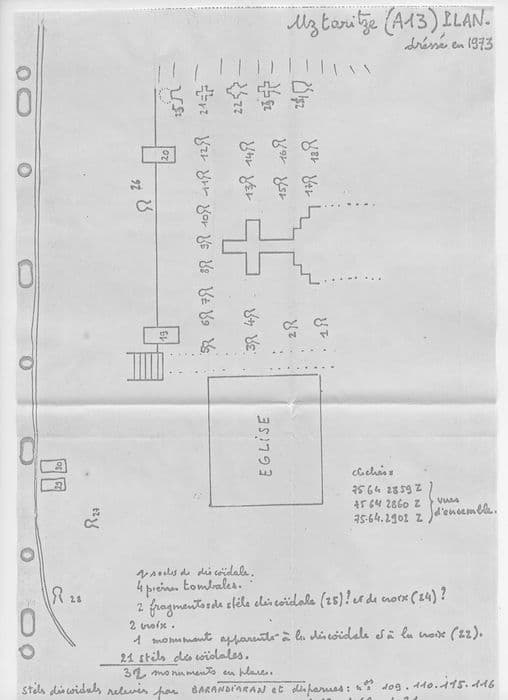 Uztaritze (A13) PLAN.
dréssé en 1973
25 21 22 23 24
20
12 14 16 18
26
11 13 15 17
10
9
8
7
6
19
5 3 4 2 1
EGLISE
30
29
27
28
clichés:
75 64 2859 Z
75 64 2860 Z
75.64.2902 Z
vues
d'ensemble.
2 socles de discoïdale.
4 pierres tombales.
2 fragments de stèle discoïdale (25)? et de croix (24)?
2 croix.
1 monument apparenté à la discoïdale et à la croix (22).
21 stèles discoïdales.
32 monuments en place.
Stèles discoïdales relevées par BARANDIARAN et disparues: nos 109. 110. 115. 116